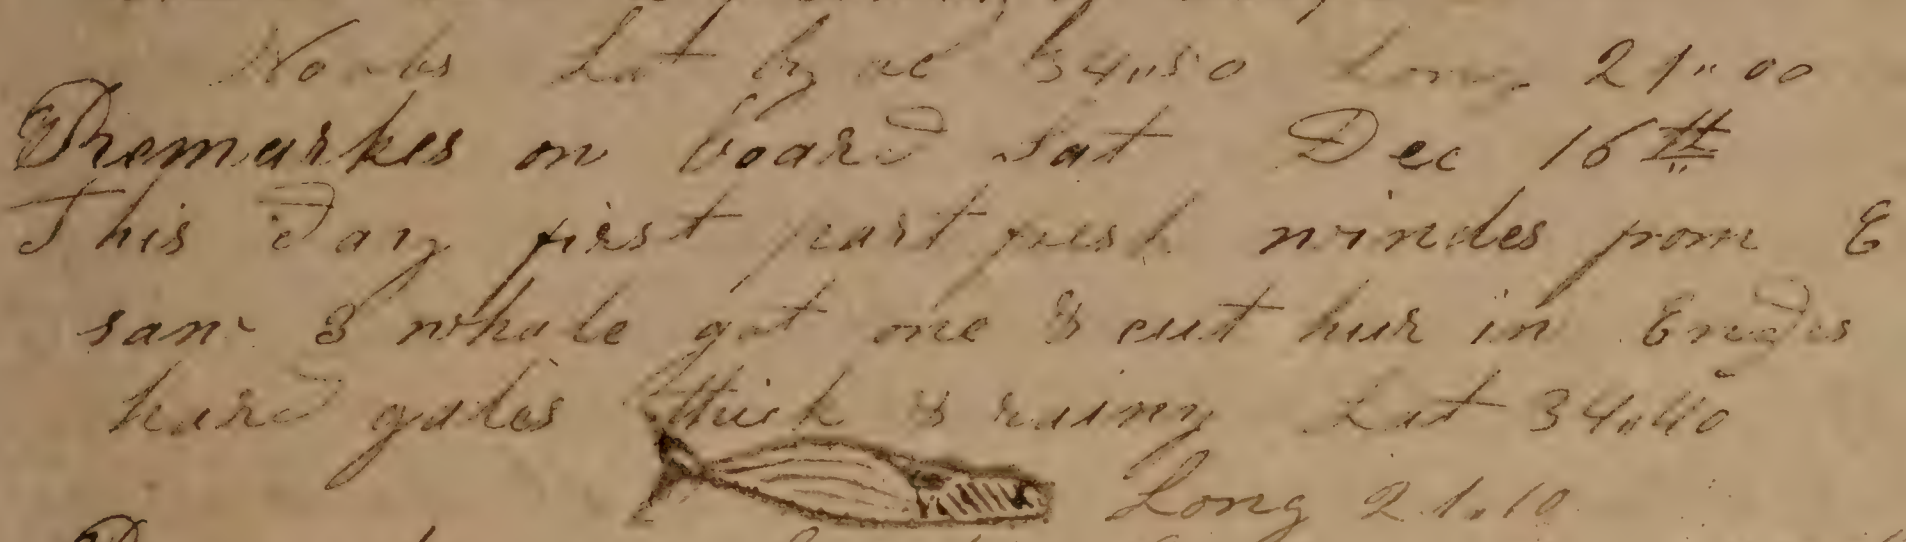 Lat by ac 34,,50 Long 21,,00
Remarkes on board Sat Dec 16th
This day first part fresh windes from E
saw 3 whale got one & cut hur in Endes
hard gales thick & rainy Lat 34,,40
Long 21,,10